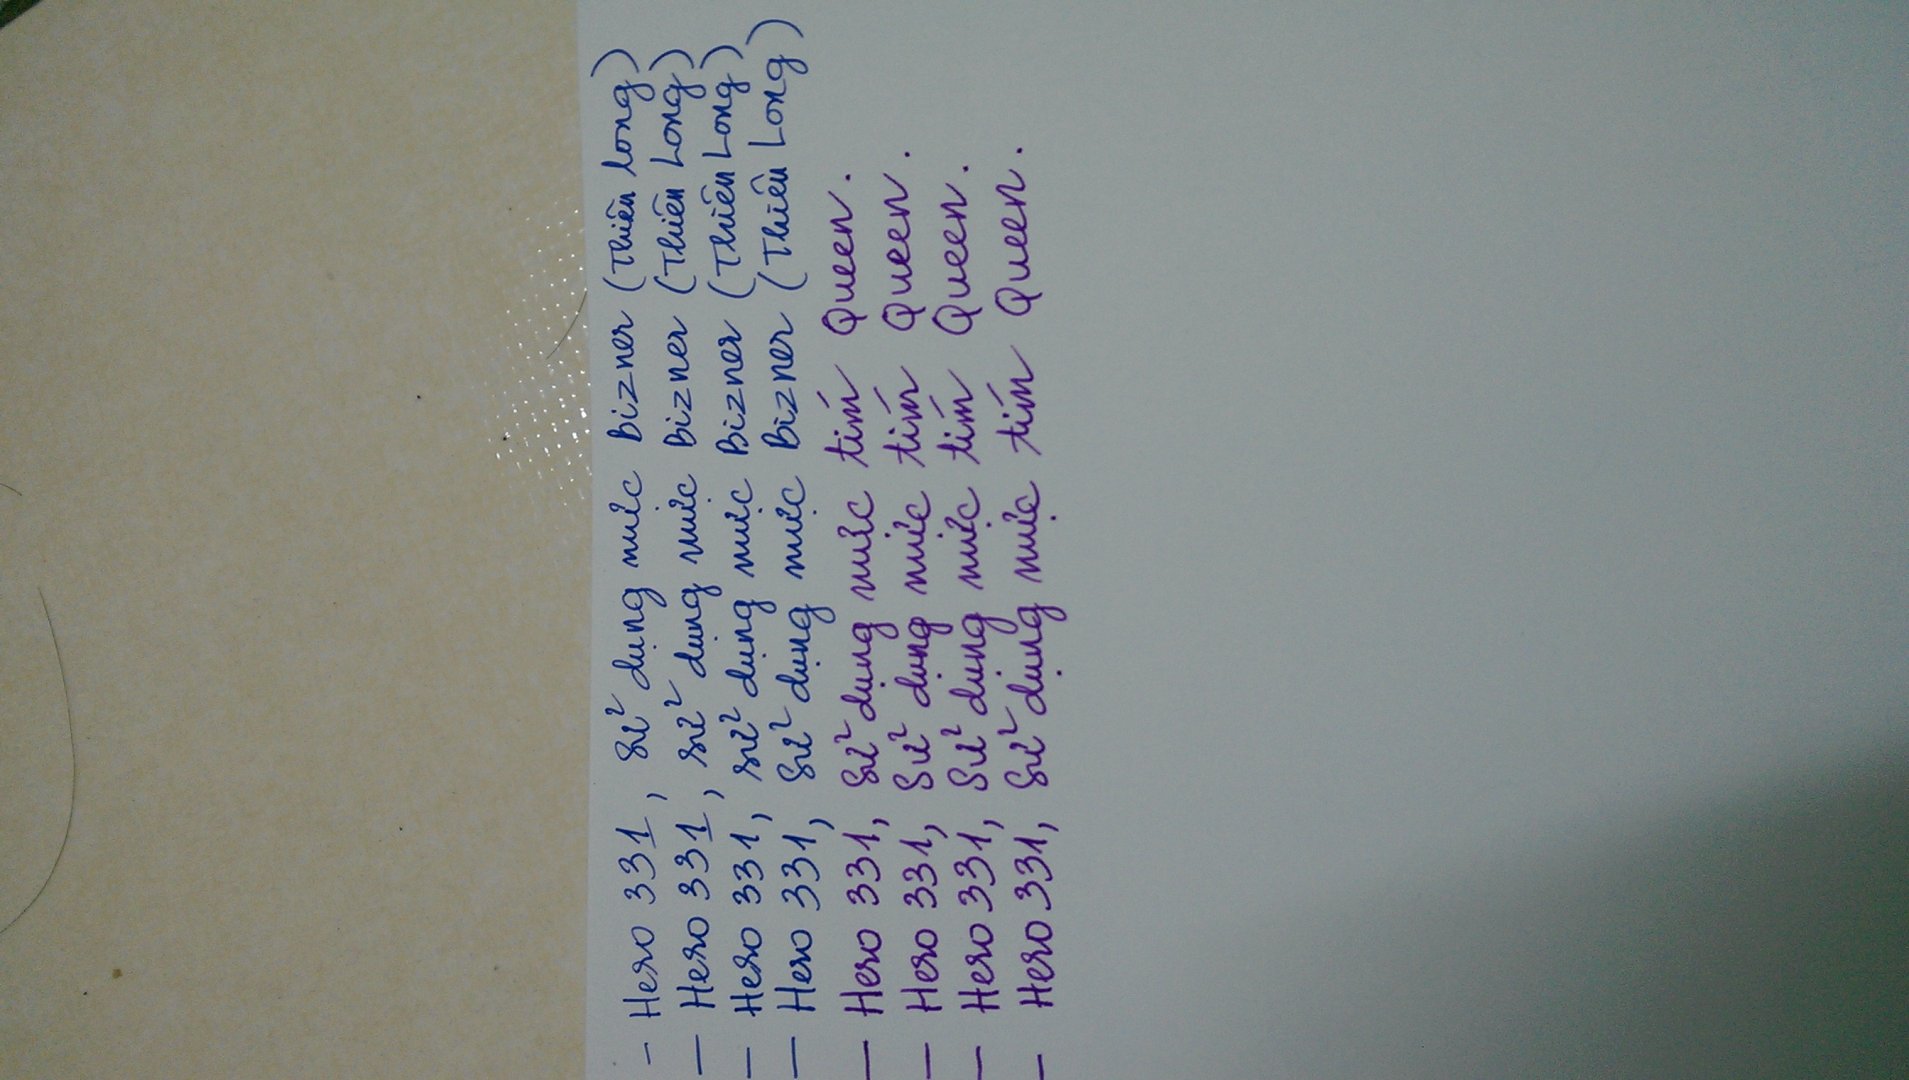 - Hero 331, sử dụng mực Bizner (Thiên Long)
- Hero 331, sử dụng mực Bizner (Thiên Long)
- Hero 331, sử dụng mực Bizner (Thiên Long)
- Hero 331, sử dụng mực Bizner (Thiên Long)
- Hero 331, sử dụng mực tím Queen.
- Hero 331, sử dụng mực tím Queen.
- Hero 331, sử dụng mực tím Queen.
- Hero 331, sử dụng mực tím Queen.